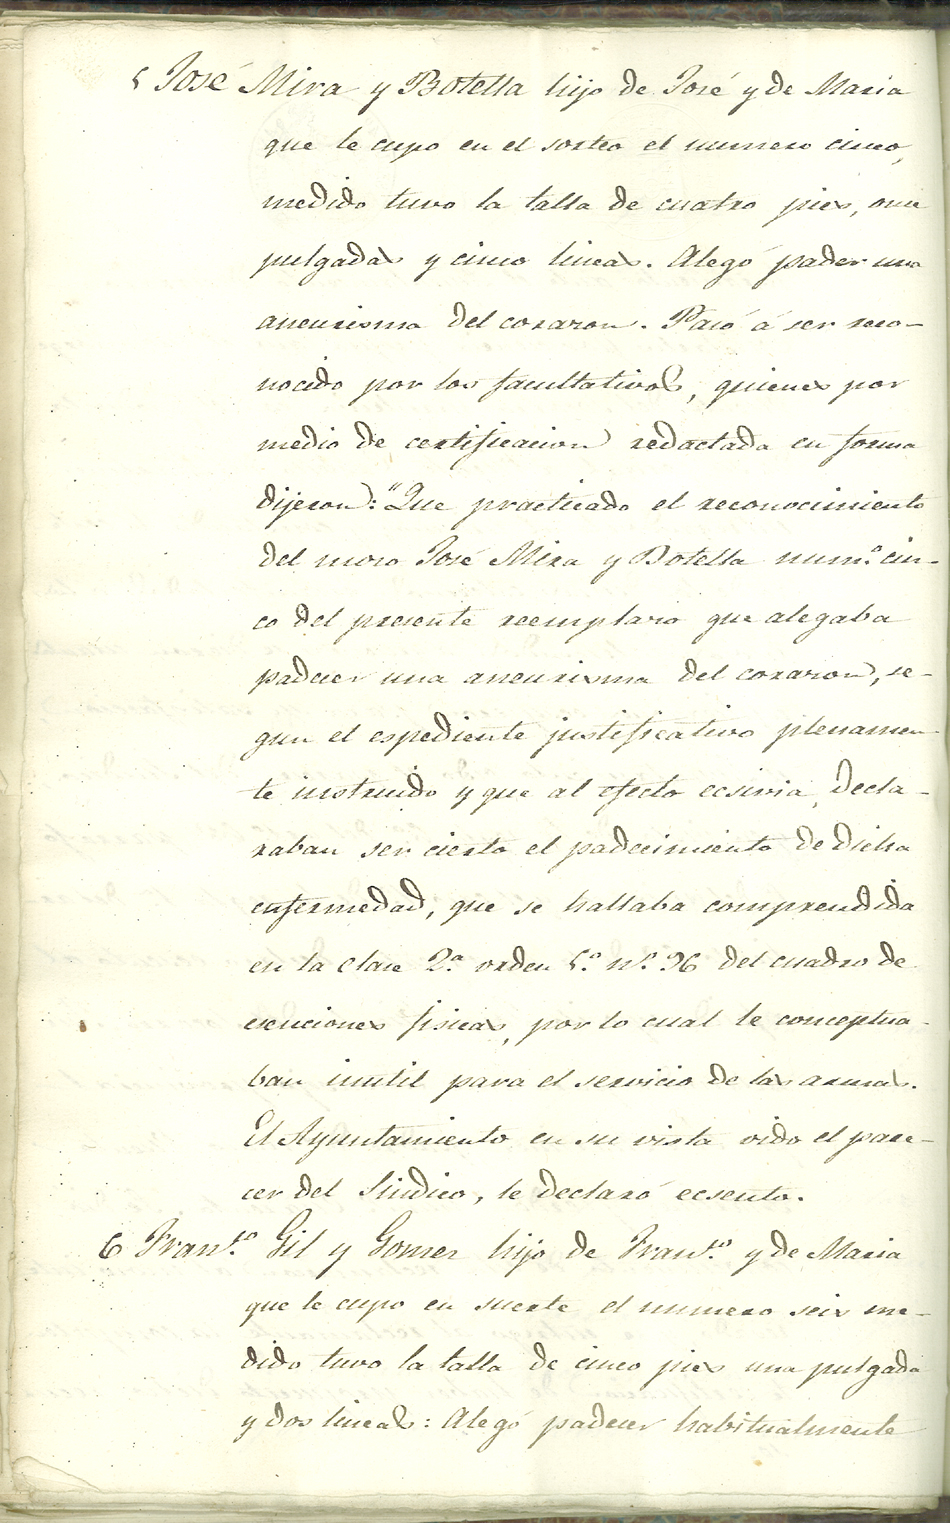 5 José Mira y Botella hijo de José y de Maria
que le cupo en el sorteo el numero cinco,
medido tuvo la talla de cuatro pies, once
pulgadas y cinco lineas. Alegó pader una
aneurisma del corazon. Pasó á ser reco-
nocido por los facultativos, quienes por
medio de certificacion redactada en forma
dijeron: "Que practicado el reconocimiento
del mozo José Mira y Botella num.º cin-
co del presente reemplazo que alegaba
padecer una aneurisma del corazon, se-
gun el espediente justificativo plenamen-
te instruido y que al efecto ecsivia, decla-
raban ser cierto el padecimiento de dicha
enfermedad, que se hallaba comprendida
en la clase 2.ª orden 5.º nº. 96 del cuadro de
esenciones fisicas, por lo cual le conceptua-
ban inutil para el servicio de las armas.
El Ayuntamiento en su vista oido el pare-
cer del Sindico, le declaró ecsento.
6 Fran.co Gil y Gomez hijo de Fran.co y de Maria
que le cupo en suerte el numero seis me-
dido tuvo la talla de cinco pies una pulgada
y dos lineas: Alegó padecer habitualmente